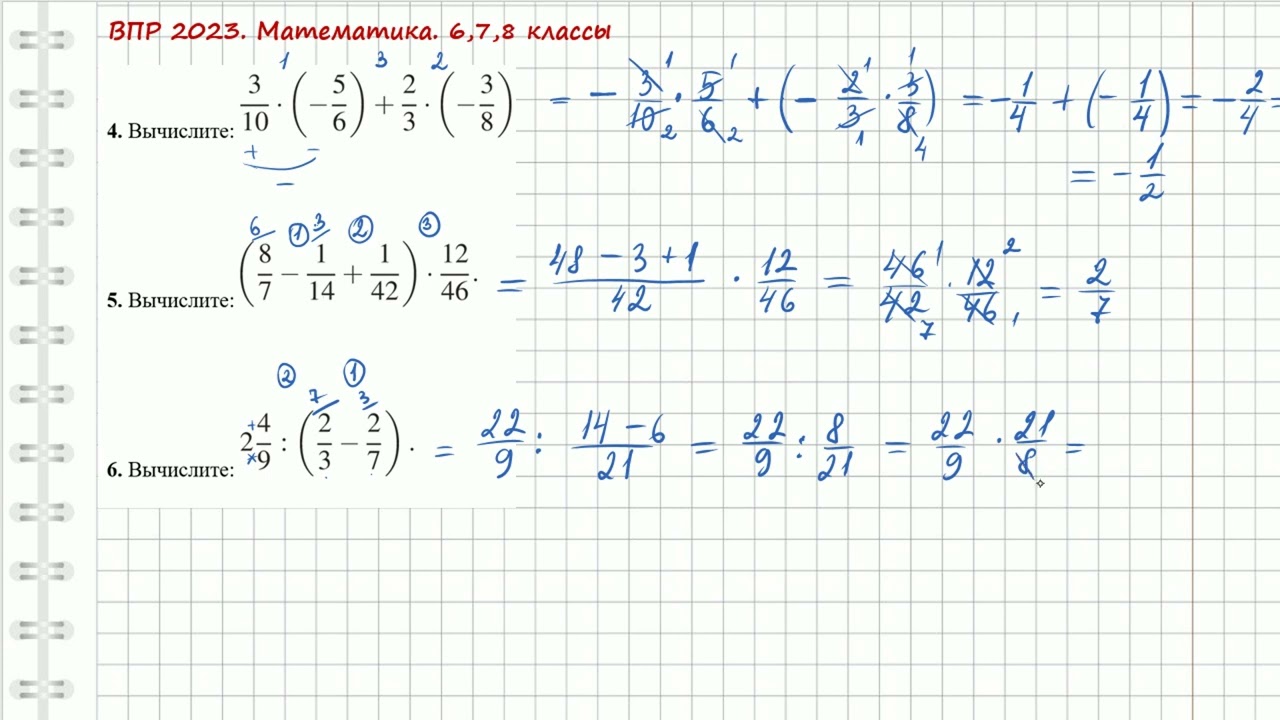 ВПР 2023. Математика. 6,7,8 классы
1 3 2
4. Вычислите: 3/10 · (−5/6) + 2/3 · (−3/8) = − 3/10 · 5/6 + (− 2/3 · 3/8) = − 1/4 + (− 1/4) = − 2/4 =
+ − 1 2 1 2 1 1 1 4
− = − 1/2
6 ① 3 ② ③
5. Вычислите: (8/7 − 1/14 + 1/42) · 12/46. = (48 − 3 + 1)/42 · 12/46 = 46/42 · 12/46 = 2/7
1 7 2 1
② ① 7 3
6. Вычислите: 2 4/9 : (2/3 − 2/7) · = 22/9 : (14 − 6)/21 = 22/9 : 8/21 = 22/9 · 21/8 =
+ ×